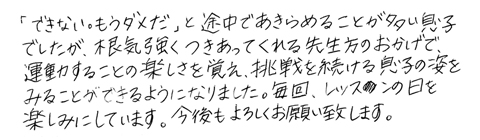 「できない。もうダメだ」と途中であきらめることが多い息子
でしたが、根気強くつきあってくれる先生方のおかげで
運動することの楽しさを覚え、挑戦を続ける息子の姿を
みることができるようになりました。毎回、レッスンの日を
楽しみにしています。今後もよろしくお願い致します。